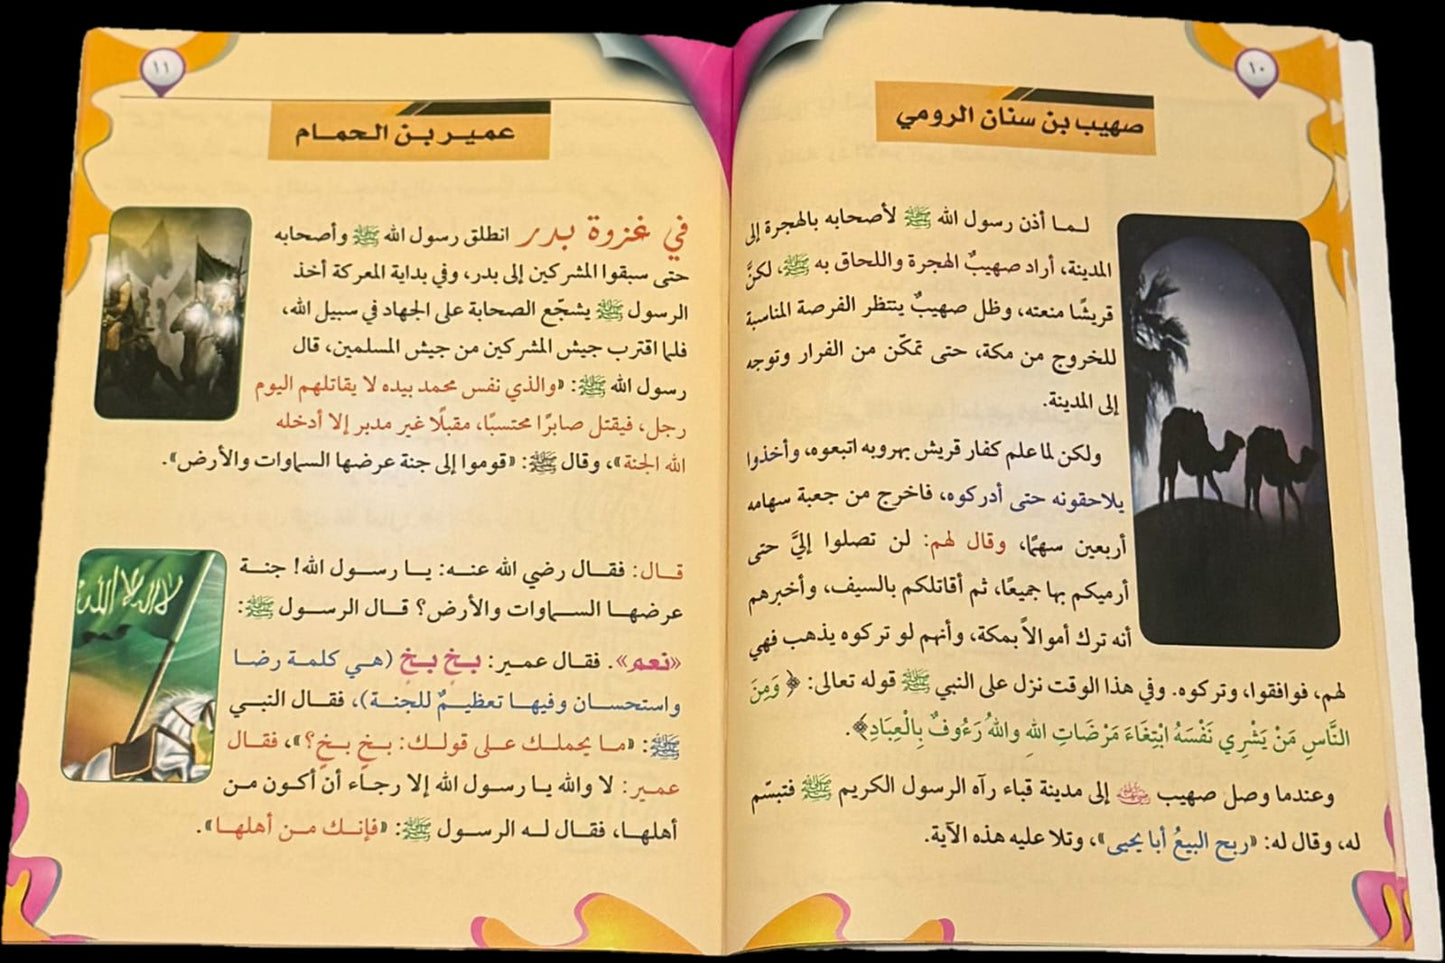 ١٠
صهيب بن سنان الرومي
لـمـا أذن رسول الله ﷺ لأصحابه بالهجرة إلى
المدينة، أراد صهيبٌ الهجرة واللحاق به ﷺ، لكنَّ
قريشًا منعته، وظل صهيبٌ ينتظر الفرصة المناسبة
للخروج من مكة، حتى تمكّن من الفرار وتوجه
إلى المدينة.
ولكن لما علم كفار قريش بهروبه اتبعوه، وأخذوا
يلاحقونه حتى أدركوه، فاخرج من جعبة سهامه
أربعين سهمًا، وقال لهم: لن تصلوا إليَّ حتى
أرميكم بها جميعًا، ثم أقاتلكم بالسيف، وأخبرهم
أنه ترك أموالاً بمكة، وأنهم لو تركوه يذهب فهي
لهم، فوافقوا، وتركوه. وفي هذا الوقت نزل على النبي ﷺ قوله تعالى: ﴿ وَمِنَ
النَّاسِ مَنْ يَشْرِي نَفْسَهُ ابْتِغَاءَ مَرْضَاتِ اللهِ واللهُ رَءُوفٌ بِالْعِبَادِ﴾.
وعندما وصل صهيب رضي الله عنه إلى مدينة قباء رآه الرسول الكريم ﷺ فتبسّم
له، وقال له: «ربح البيعُ أبا يحيى»، وتلا عليه هذه الآية.
١١
عمير بن الحمام
في غزوة بدر انطلق رسول الله ﷺ وأصحابه
حتى سبقوا المشركين إلى بدر، وفي بداية المعركة أخذ
الرسول ﷺ يشجّع الصحابة على الجهاد في سبيل الله،
فلما اقترب جيش المشركين من جيش المسلمين، قال
رسول الله ﷺ: «والذي نفس محمد بيده لا يقاتلهم اليوم
رجل، فيقتل صابرًا محتسبًا، مقبلًا غير مدبر إلا أدخله
الله الجنة»، وقال ﷺ: «قوموا إلى جنة عرضها السماوات والأرض».
لا إله إلا الله
قـال: فقـال رضي الله عنـه: يـا رسـول الله! جنـة
عرضهـا السـماوات والأرض؟ قـال الرسـول ﷺ:
«نعم». فقـال عمير: بـخٍ بـخٍ (هـي كلمـة رضـا
واستحسـان وفيهـا تعظيـمٌ للجنـة)، فقـال النبـي
ﷺ: «مـا يحملـك علـى قولـك: بـخٍ بـخٍ؟»، فقـال
عميـر: لا والله يـا رسـول الله إلا رجـاء أن أكـون مـن
أهلهـا، فقـال لـه الرسـول ﷺ: «فإنـك مـن أهلهـا».